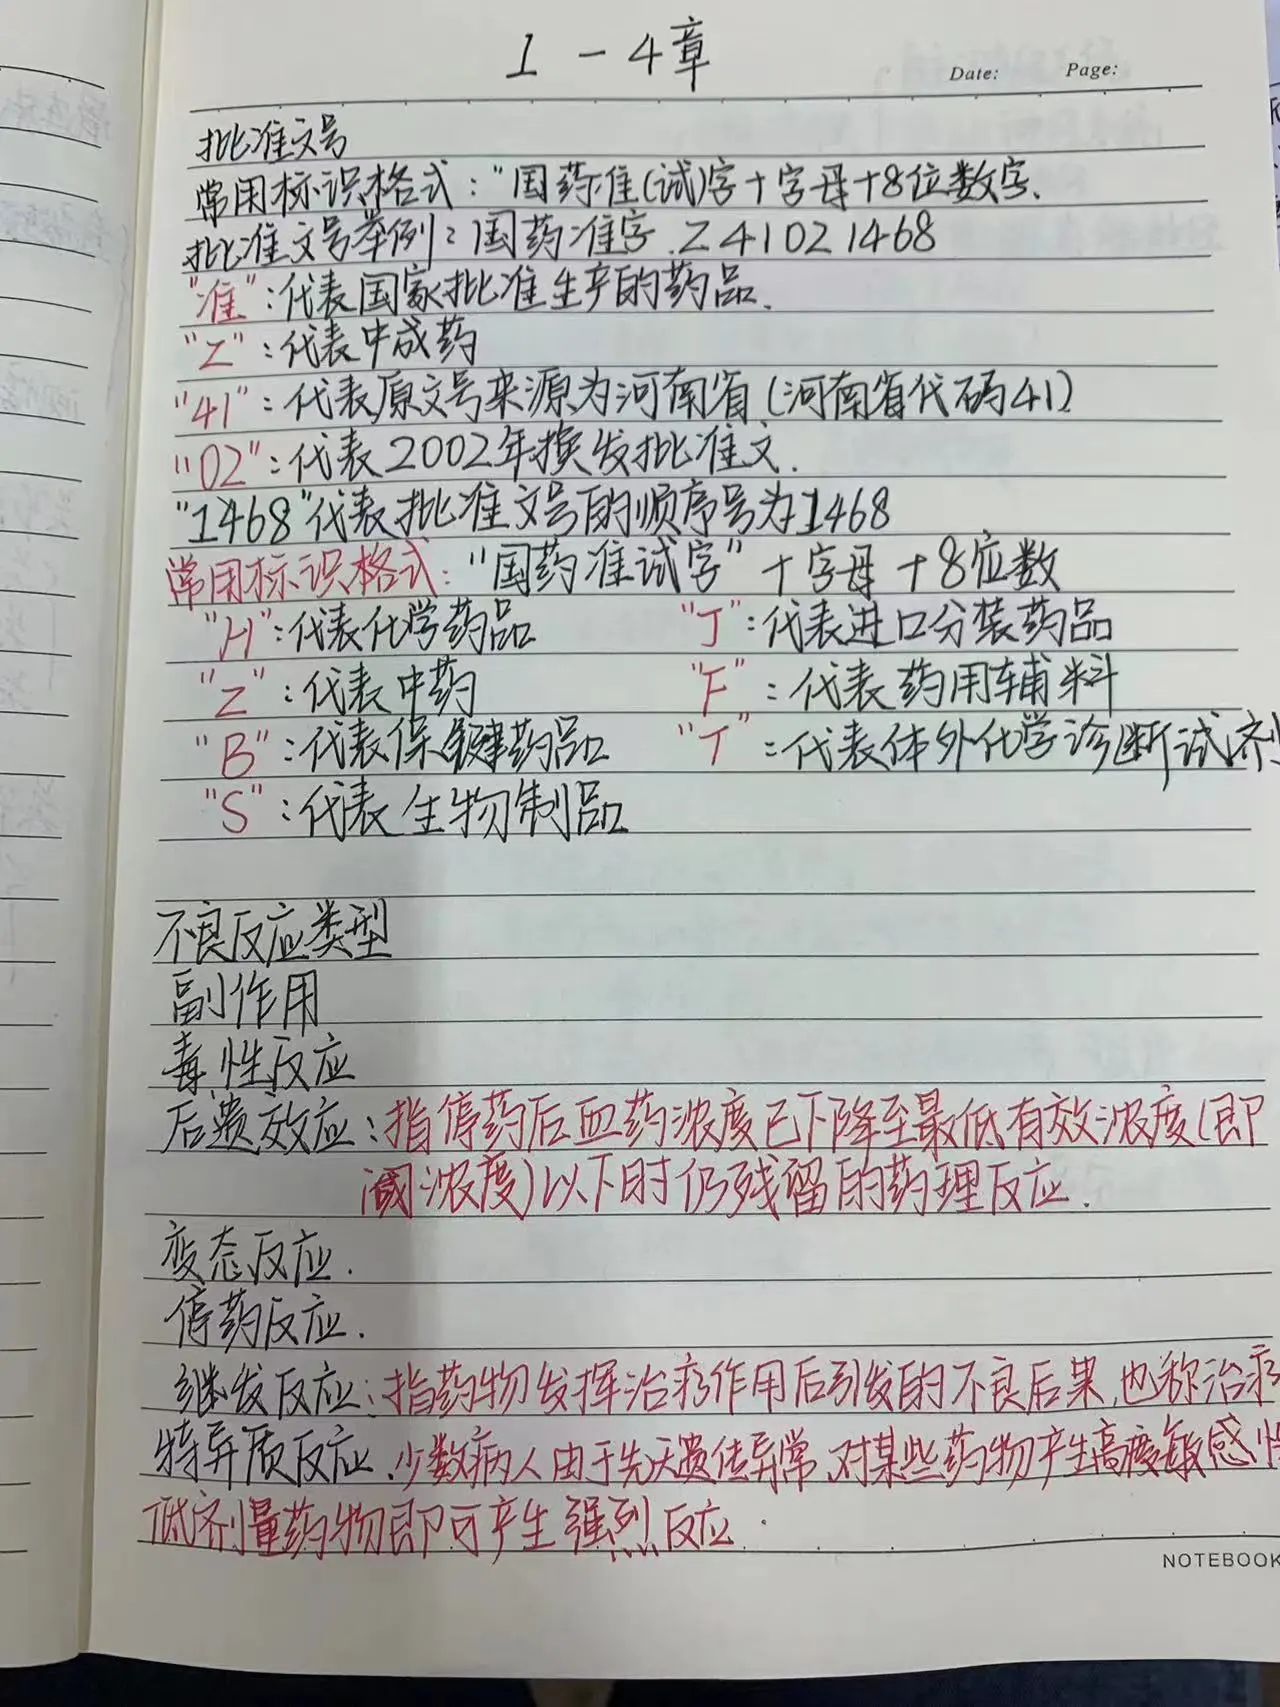 1-4章
Date: Page:
批准文号
常用标识格式:"国药准(试)字+字母+8位数字.
批准文号举例:国药准字.Z41021468
"准":代表国家批准生产的药品.
"Z":代表中成药
"41":代表原文号来源为河南省(河南省代码41)
"02":代表2002年换发批准文.
"1468"代表批准文号的顺序号为1468
常用标识格式:"国药准试字"+字母+8位数
"H":代表化学药品 "J":代表进口分装药品
"Z":代表中药 "F":代表药用辅料
"B":代表保健药品 "T":代表体外化学诊断试剂
"S":代表生物制品
不良反应类型
副作用
毒性反应
后遗效应:指停药后血药浓度已下降至最低有效浓度(即
阈浓度)以下时仍残留的药理反应.
变态反应.
停药反应.
继发反应:指药物发挥治疗作用后引发的不良后果,也称治疗
特异质反应.少数病人由于先天遗传异常,对某些药物产生高度敏感性
低剂量药物即可产生强烈反应.
NOTEBOOK